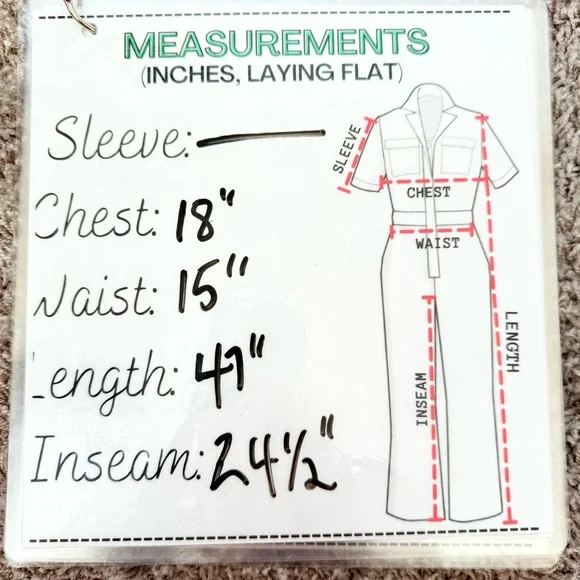 MEASUREMENTS
(INCHES, LAYING FLAT)
Sleeve:
Chest: 18"
Waist: 15"
Length:
Inseam: 24½"
SLEEVE
CHEST
WAIST
LENGTH
INSEAM